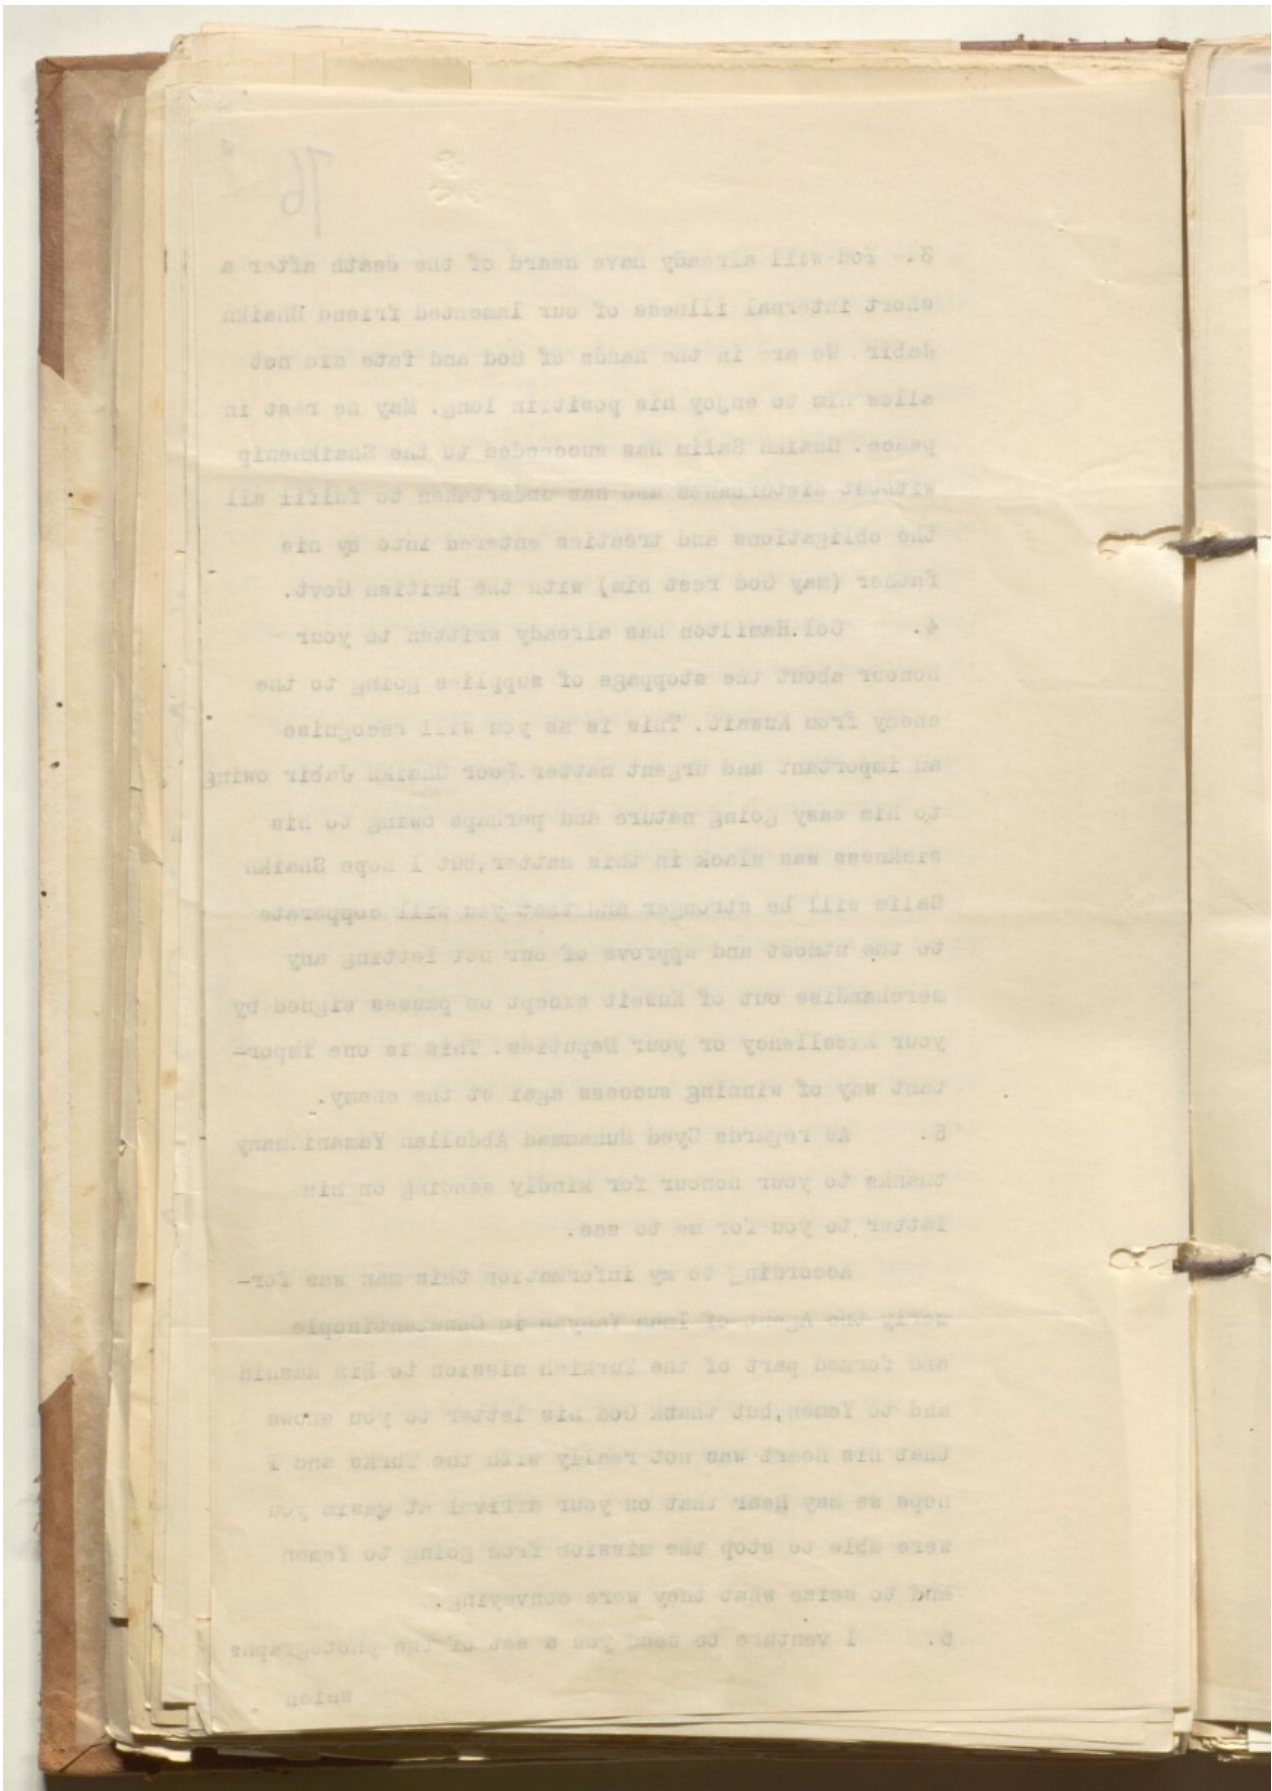 76
3. You will already have heard of the death after a
short internal illness of our lamented friend Shaikh
Jabir. We are in the hands of God and fate did not
allow him to enjoy his positiin long. May he rest in
peace. Shaikh Salim has succeeded to the Shaikhship
without disturbance and has undertaken to fulfil all
the obligations and treaties entered into by his
father (may God rest him) with the British Govt.
4. Col.Hamilton has already written to your
honour about the stoppage of supplies going to the
enemy from Kuwait. This is as you will recognise
an important and urgent matter.Poor Shaikh Jabir owing
to his easy going nature and perhaps owing to his
sickness was slack in this matter,but I hope Shaikh
Salim will be stronger and that you will copperate
to the utmost and approve of our not letting any
merchandise out of Kuwait except on passes signed by
your Excellency or your Deputies. This is one impor-
tant way of winning success agai st the enemy.
5. As regards Syed Muhammad Abdullah Yamani.many
thanks to your honour for kindly sending on his
letter to you for me to see.
According to my information this man was for-
merly the Agent of Imam Yahya in Constantinople
and formed part of the Turkish mission to Bin Rashid
and to Yemen,but thank God his letter to you shows
that his heart was not really with the Turks and I
hope we may hear that on your arrival at Qasim you
were able to stop the mission from going to Yemen
and to seize what they were conveying.
6. I venture to send you a set of the photographs
which